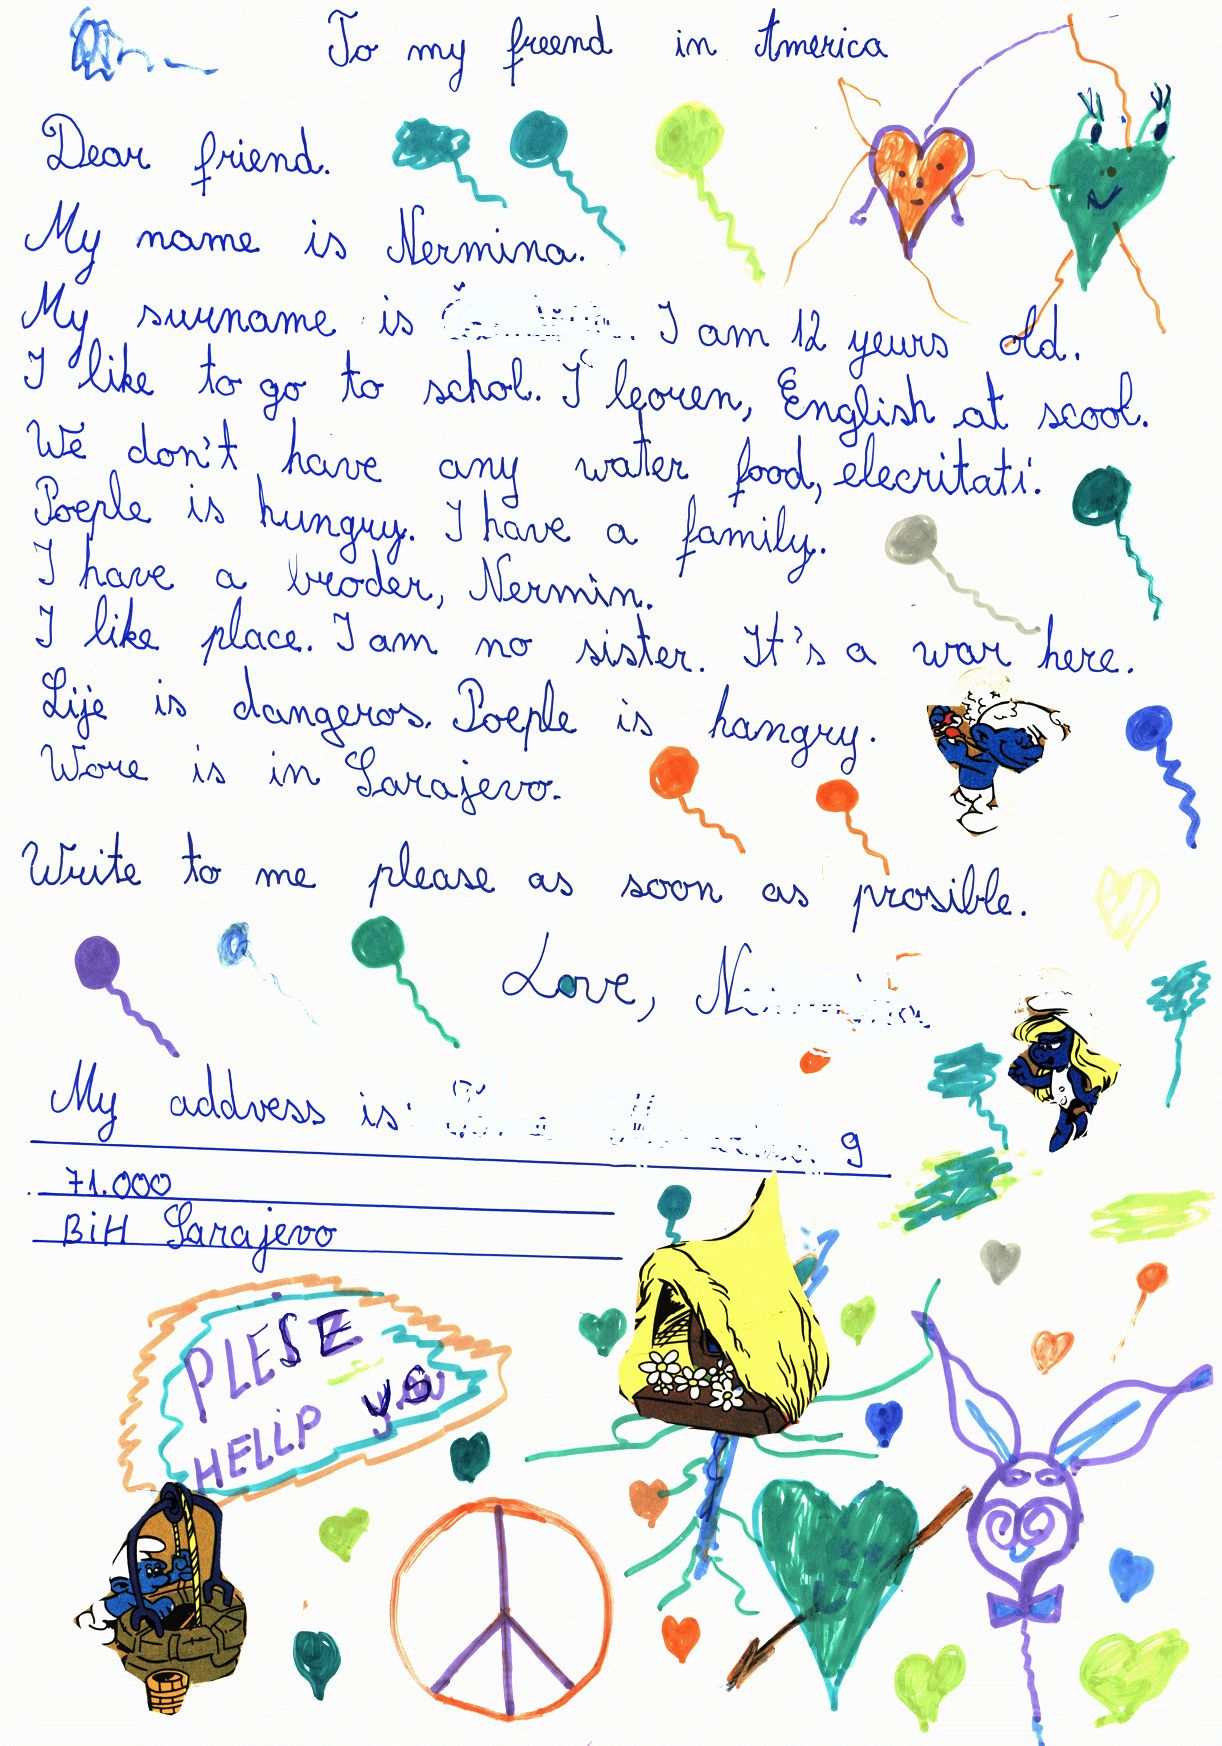 To my freend in America
Dear friend.
My name is Nermina.
My surname is . I am 12 yeurs old.
I like to go to schol. I leoren, English at scool.
We don't have any water food, elecritati.
Poeple is hungry. I have a family.
I have a broder, Nermin.
I like place. I am no sister. It's a war here.
Lije is dangeros. Poeple is hangry.
Wore is in Sarajevo.
Write to me please as soon as prosible.
Love,
My address is: 9
71.000
BiH Sarajevo
PLESE
HELLP